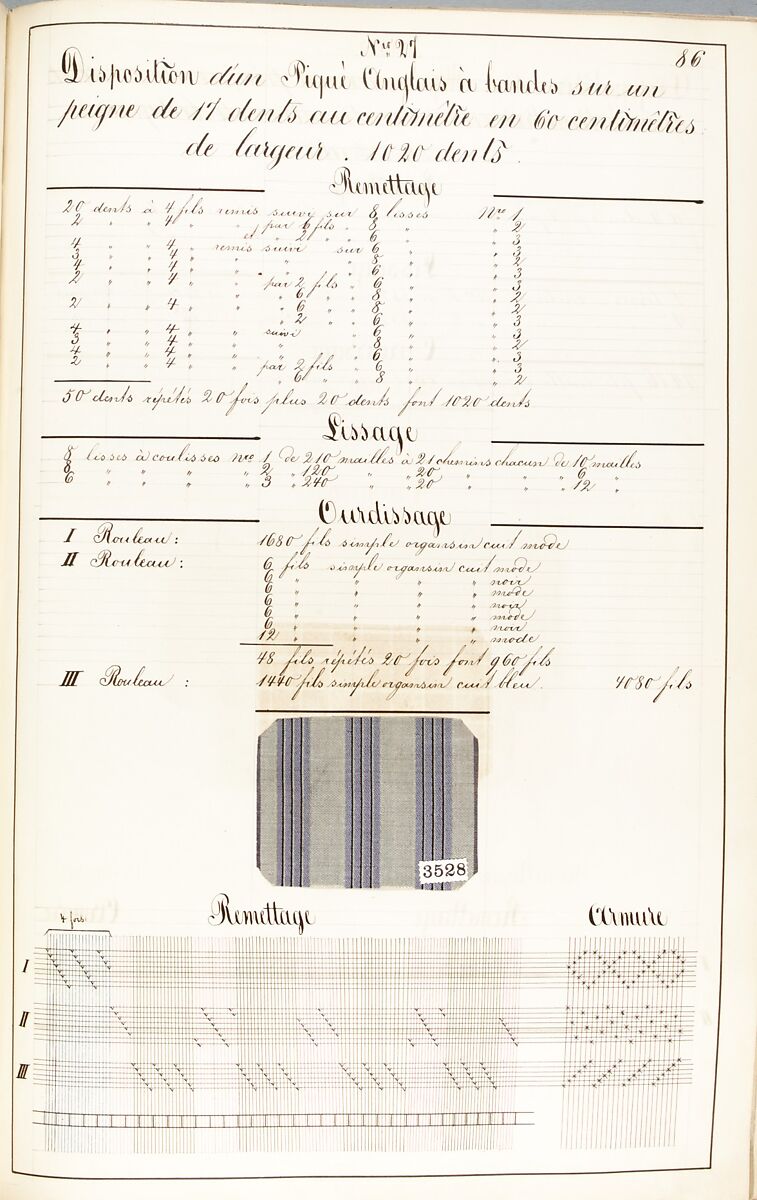 Nro 27
86
Disposition d'un Piqué Anglais à bandes sur un
peigne de 17 dents au centimètre en 60 centimètres
de largeur. 1020 dents.
Remettage
20 dents à 4 fils remis suivi sur 8 lisses Nro 1
2 " " 4 " " par 6 fils " 8 " " 2
et " 2 " " 6 " " 3
4 " " 4 " remis suivi sur 6 " " 3
3 " " 4 " " " " 8 " " 2
4 " " 4 " " " " 6 " " 3
2 " " 4 " " par 2 fils " 6 " " 3
" " 6 " " 8 " " 2
2 " " 4 " " " 6 " " 8 " " 2
" 2 " " 6 " " 3
4 " " 4 " " suivi " 6 " " 3
3 " " 4 " " " " 8 " " 2
4 " " 4 " " " " 6 " " 3
2 " " 4 " " par 2 fils " 6 " " 3
" 6 " " 8 " " 2
50 dents répétés 20 fois plus 20 dents font 1020 dents
Lissage
8 lisses à coulisses Nro 1 de 210 mailles à 21 chemins chacun de 10 mailles
8 " " " " 2 " 120 " " 20 " " " 6 "
6 " " " " 3 " 240 " " 20 " " " 12 "
Ourdissage
I Rouleau: 1680 fils simple organsin cuit mode
II Rouleau: 6 fils simple organsin cuit mode
6 " " " " noir
6 " " " " mode
6 " " " " noir
6 " " " " mode
6 " " " " noir
12 " " " " mode
48 fils répétés 20 fois font 960 fils
III Rouleau : 1440 fils simple organsin cuit bleu. 4080 fils
3528
4 fois
Remettage
Armure
I
II
III